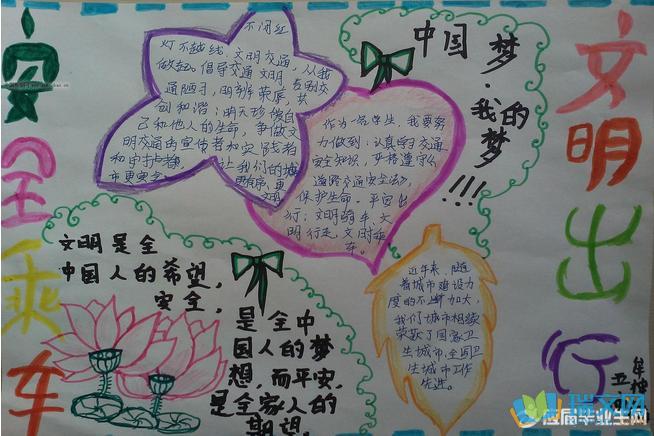 安全乘车
不闯红
灯不越线,文明交通,
做起。倡导交通文明,从我
通陋习,明辨荣辱,共
创和谐;明天珍惜自
己和他人的生命,争做文
明交通的宣传者和实践者
和守护者,让我们的城
市更安全,更有序,更
文明
中国梦
·我的
梦!!!
作为一名学生,我要努
力做到:认真学习交通
安全知识,严格遵守《
道路交通安全法》,
保护生命,平安出
行;文明骑车,文
明行走,文明乘
车。
文明出行
文明是全
中国人的希望,
安全,
是全中
国人的梦
想,而平安,
是全家人的
期望。
近年来,随
着城市建设力
度的不断加大,
我们城市相继
荣获了国家卫
生城市,全国卫
生城市工作
先进。
应届毕业生网
瑞文网